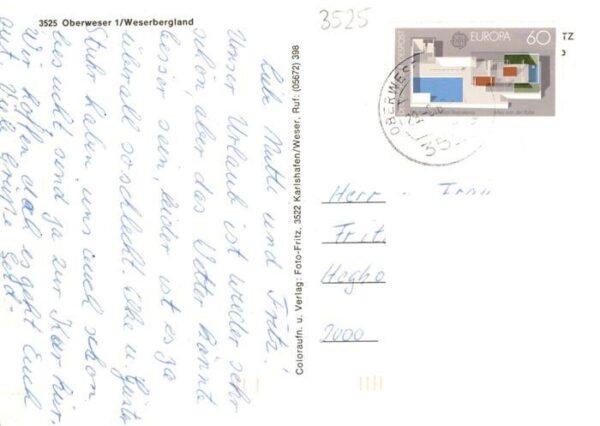 3525 Oberweser 1/Weserbergland
Liebe Mutti und Fritz!
Unser Urlaub ist wieder sehr
schön, aber das Wetter könnte
besser sein, leider ist es ja
überall so schlecht. Elke u. Günter
Stuhr haben uns auch schon
besucht sind ja zur Kur hier.
Wir hoffen doch es geht Euch
gut. Viele Grüße
Coloraufn. u. Verlag: Foto-Fritz, 3522 Karlshafen/Weser, Ruf: (05672) 398
3525
EUROPA 60
OBERWES
35
TZ
Herr -
Fritz
Hegho
2000